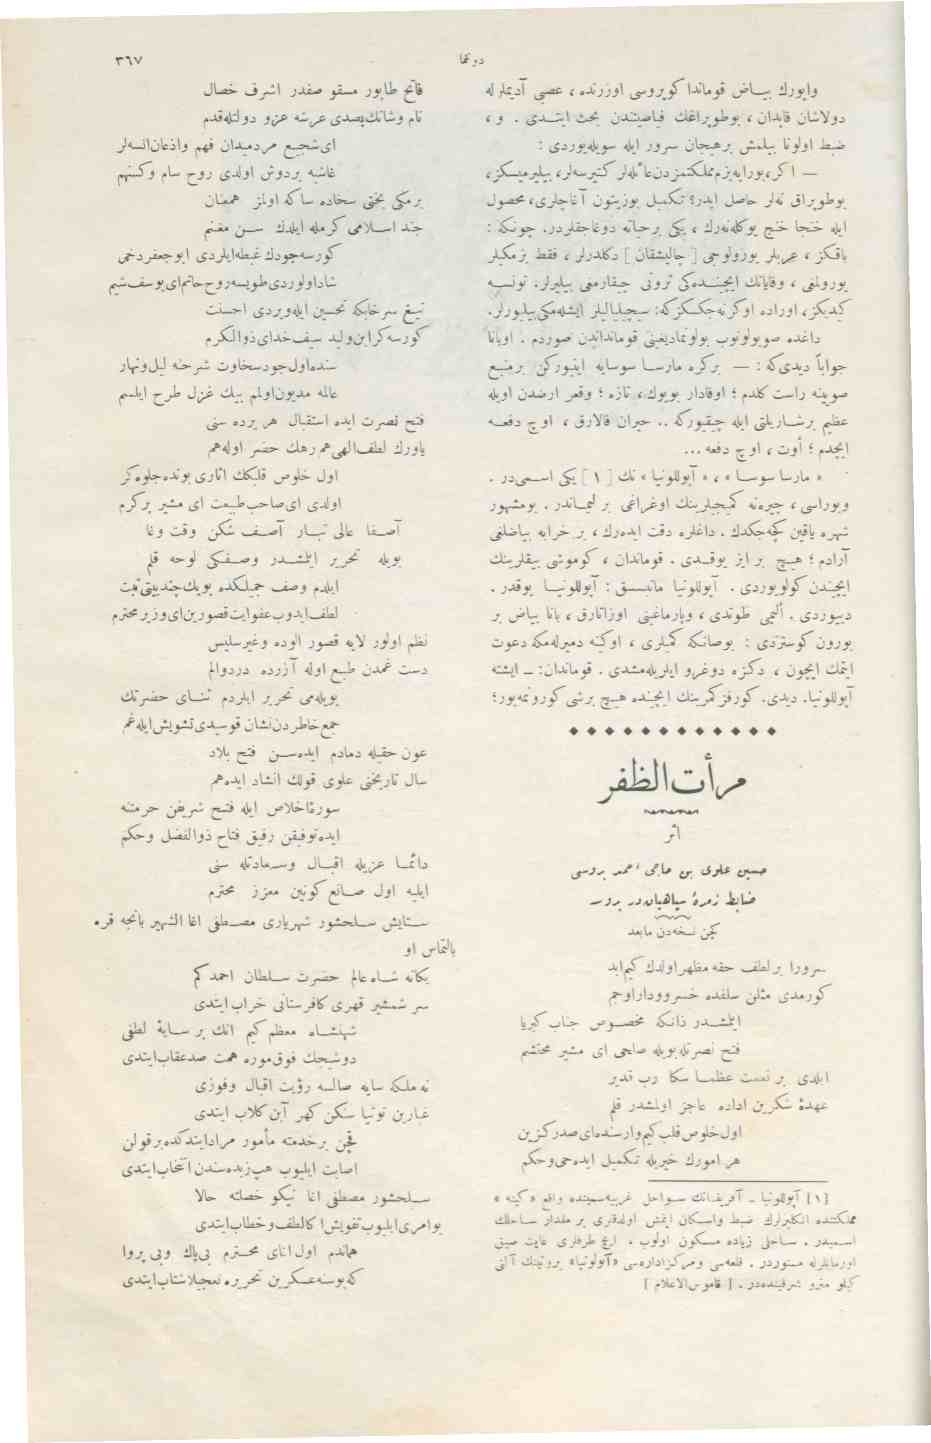 دونما
٣٦٧
واپورك بياض قوماندا كوپروسى اوزرنده ، عصبى آديملرله
دولاشان قاپدان ، بوطوپراغك فياصيتندن بحث ايتدى . و ،
ضبط اولونا بيلمش برهيجان سرور ايله سويله‌يوردى :
— اكر ، بورايه بزم مملكتمزدن عائله‌لر كتيرسه‌لر ، بيليرميسكز ،
بوطوپراق نه‌لر حاصل ايدر؟ تكميل بوزيتون آغاجلرى ، محصول
ايله خنجا خنج يوكله‌نه‌رك ، يكى برحياته دوغاجقلردر . چونكه :
باقكز ، عربلر يورولوجى [ چاليشقان ] دكلدرلر ، فقط بزمكيلر
يورولمغى ، وقايانك ايچنده‌كى ثروتى چيقارمغى بيليرلر. تونسه
كيديكز ، اوراده اوكرنه‌جكسكزكه : سيچيليالیلر ايشله‌مكى بيليورلر.
داغده صوبولونوب بولونماديغنى قومانداندن صوردم . اوبانا
جواباً ديدى‌كه : — بركره مارسا سوسايه اينيوركن برمنبع
صويينه راست كلدم ؛ اوقادار بويوك ، تازه ؛ وقعر ارضدن اويله
عظيم برشاريلتى ايله چيقيوركه .. حيران قالارق ، اوچ دفعه
ايچدم ؛ أوت ، اوچ دفعه ...
« مارسا سوسا » ، « آپوللونيا » نك [ ١ ] يكى اسمى‌در .
وبوراسى ، جيره‌نه كميجيلرينك اوغراغى بر ليماندر . بومشهور
شهره ياقين كچه‌جكدك . داغلره دقت ايده‌رك ، بر خرابه بياضلغى
آرادم ؛ هيچ بر ايز يوقدى . قوماندان ، كوموشى بيقلرينك
ايچندن كولويوردى . آپوللونيا ماندسسق : آپوللونيا يوقدر .
دييوردى . ألیمى طوتدى ، وپارماغينى اوزاتارق ، بانا بياض بر
بورون كوستردى : بوصانكه كميلرى ، اوكينه دميرله‌مكه دعوت
ايتمك ايچون ، دكزه دوغرو ايلريله‌مشدى . قوماندان: ـ ايشته
آپوللونيا. ديدى. كورفز كمرينك ايچنده هيچ برشى كورونمه‌يور؛
مرأت الظفر
اثر
حسين علوى بن حاجى احمد بروسى
ضابط زمرهٔ سپاهيان در بروسه
كچن نسخه‌دن مابعد
سرورا بر لطف حقه مظهر اولدك كيم ابد
كورمدى مثلن سلفده خسرو و دارا و جم
ايتمشدر ذاتكه مخصوص جناب كبريا
فتح نصرتله بويله صاحبى اى مشير محتشم
ايلدى بر نعمت عظما سكا رب قدير
عهدهٔ شكرين اداده عاجز اولمشدر قلم
اول خلوص قلب كيم وار سنده‌اى صدر كزين
هر امورك خيريله تكميل ايده حى و حكم
[١] آپوللونيا ـ آفريقانك سواحل غربيه‌سيننده واقع « كينه »
مملكتنده انكليزلرك ضبط واسكان ايتمش اولدقلرى بر مقدار ساحلك
اسميدر . ساحلى زياده مسكون اولوب ، ايچ طرفلرى غايت صيق
اورمانلرله مستوردر . قلعه‌سى ومركز اداره‌سى «آپولونيا» بروتينك آلتى
كيلو مترو شرقينده‌در . [ قاموس الاعلام ]
فاتح طابور مسقو صفدر اشرف خصال
نام وشانك يصدى عرشه عزو دولتله قدم
اى شجيع مردميدان فهم واذعان انسه‌لر
غاشيه بردوش اولدى روح سام وكستهم
برمكى بختى سخاده ساكه اولمز همعنان
جند اسلامى كرمله ايلدك سن مغتنم
كورسه جودك غبطه ايلردى ابوجعفر دخى
شاد اولوردى طويسه روح حاتم اى يوسف شيم
تيغ سرخابكه تحسين ايله ويردى احسنت
كورسه كر ابن وليد سيف خداى ذوالكرم
سنده اول جود سخاوت شرحنه ليل ونهار
عالمه مديون اولم بيك غزل طرح ايلسم
فتح نصرت ايده استقبال هر يرده سنى
ياورك لطف الهى هم رهك حضر اوله هم
اول خلوص قلبكك اثارى بونده جلوه كر
اولدى اى صاحب طبيعت اى مشير پركرم
آصفا عالى تبار آصف شكن وقت وغا
بويله تحرير ايتمشدر وصفكى لوحه قلم
ايلدم وصف جميلكده بويك چند بيتى ثبت
لطف ايدوب عفو ايت قصورين اى وزير محترم
نظم اولور لابه قصور الوده وغير سليس
دست غمدن طبع اوله آزرده درد والم
بويله‌مى تحرير ايلردم ثناى حضرتك
جمع خاطردن نشان قوسيدى تشويش ايله غم
عون حقيله دمادم ايده‌سن فتح بلاد
سال تاريخنى علوى قولك انشاد ايده‌هم
سورهٔ اخلاص ايله فتح شريفن حرمتنه
ايده توفيقن رفيق فتاح ذوالفضل وحكم
دائما عزيله اقبال وسعادتله سنى
ايليه اول صانع كونين معزز محترم
ستايش سلحشور شهريارى مصطفى اغا الشهير بانجه قره
بالتماس او
يكانه شاه عالم حضرت سلطان احمد كم
سر شمشير قهرى كافرستانى خراب ايتدى
شهنشاه معظم كيم انك بر سايهٔ لطفى
دوشيجك فوق موره همت صد عقاب ايتدى
نه ملكه سايه صالسه رؤيت اقبال وفوزى
غبارين توتيا سكن كهر آبن كلاب ايتدى
قچن برخدمته مأمور مراد ايتدكده برقولن
اصابت ايليوب هپ زبده سندن انتخاب ايتدى
سلحشور مصطفى اغا نيكو خصلته حالا
بو امرى ايليوب تفويض اكا لطف وخطاب ايتدى
هماندم اول اناى محترم بى‌باك وبى‌پروا
كه بوسنه عسكرين تحريره تعجيلا شتاب ايتدى